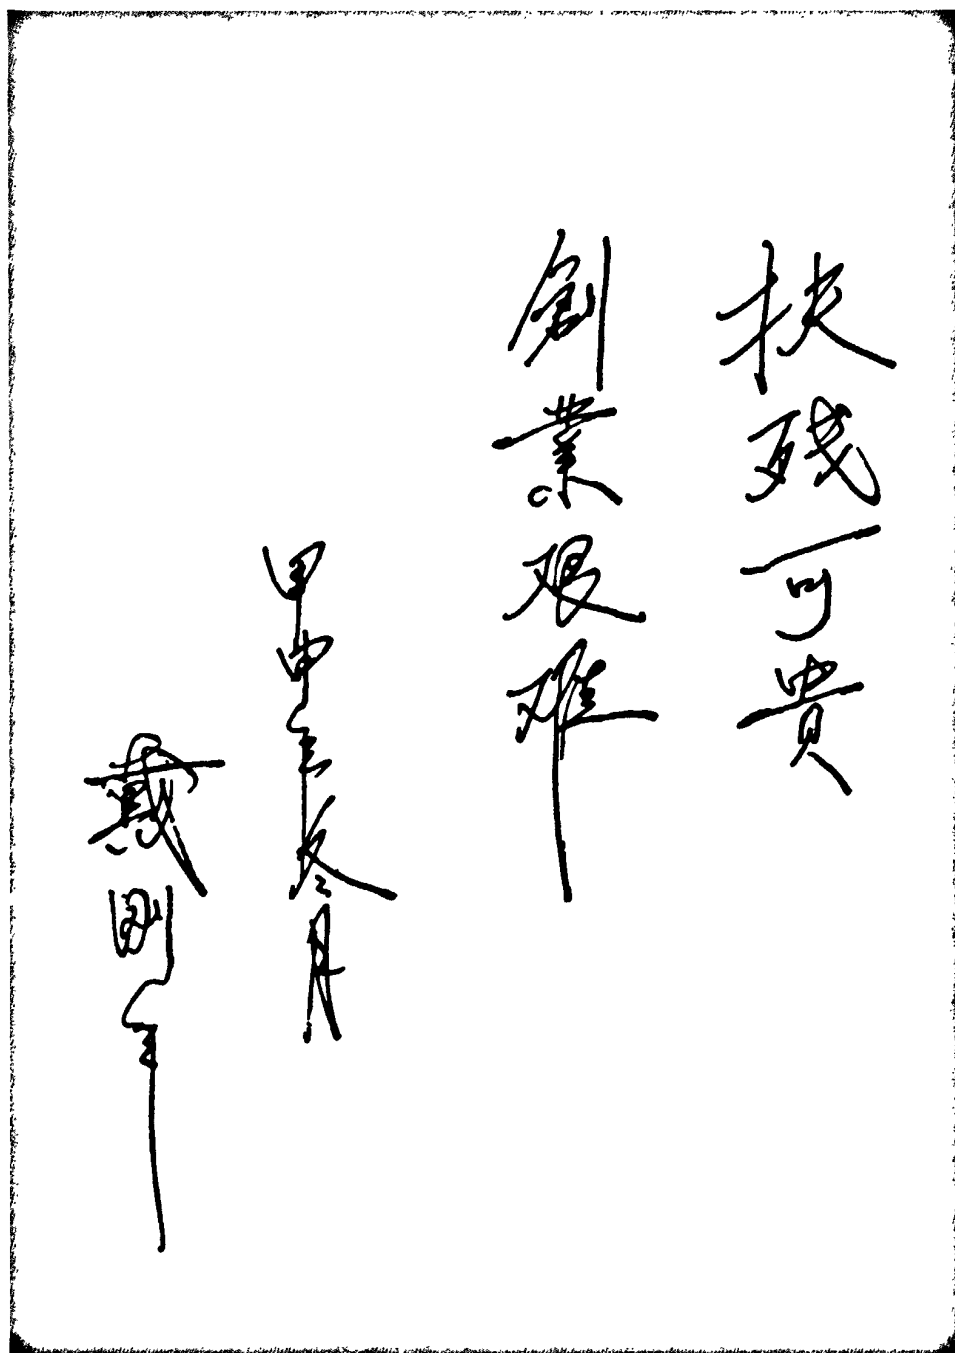 扶残可貴
創業艰难
甲申年冬月
戴剛年